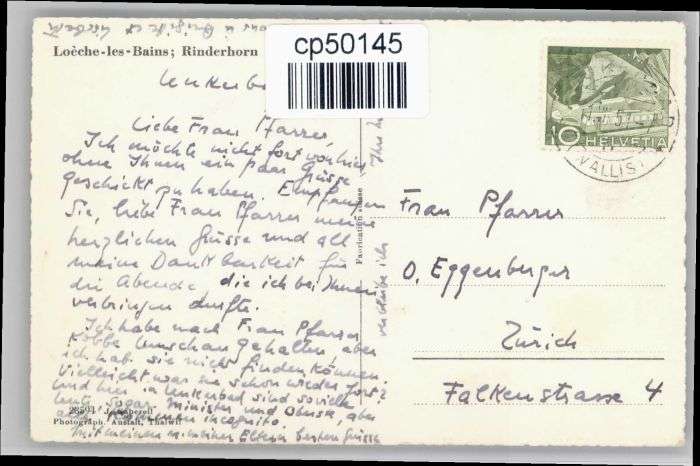 Loèche-les-Bains; Rinderhorn
cp50145
Liebe Frau Pfarrer,
Ich möchte nicht fort von hier
ohne Ihnen ein paar Grüsse
geschickt zu haben. Empfangen
Sie, liebe Frau Pfarrer meine
herzlichen Grüsse und all
meine Dankbarkeit für
die Abende, die ich bei Ihnen
verbringen durfte.
Ich habe nach Frau Pfarrer
Kobbe Umschau gehalten aber
ich hab sie nicht finden können.
Vielleicht war sie schon wieder fort?
Und hier in Leukerbad sind soviele
Leute. Sogar Minister und aber
incognito.
mit meinen Eltern besten Grüsse
28591
Photograph. Anstalt, Thalwil
Fabrication suisse
verbleibe ich
10 HELVETIA
VALLIS
Frau Pfarrer
O. Eggenberger
Zürich
Falkenstrasse 4